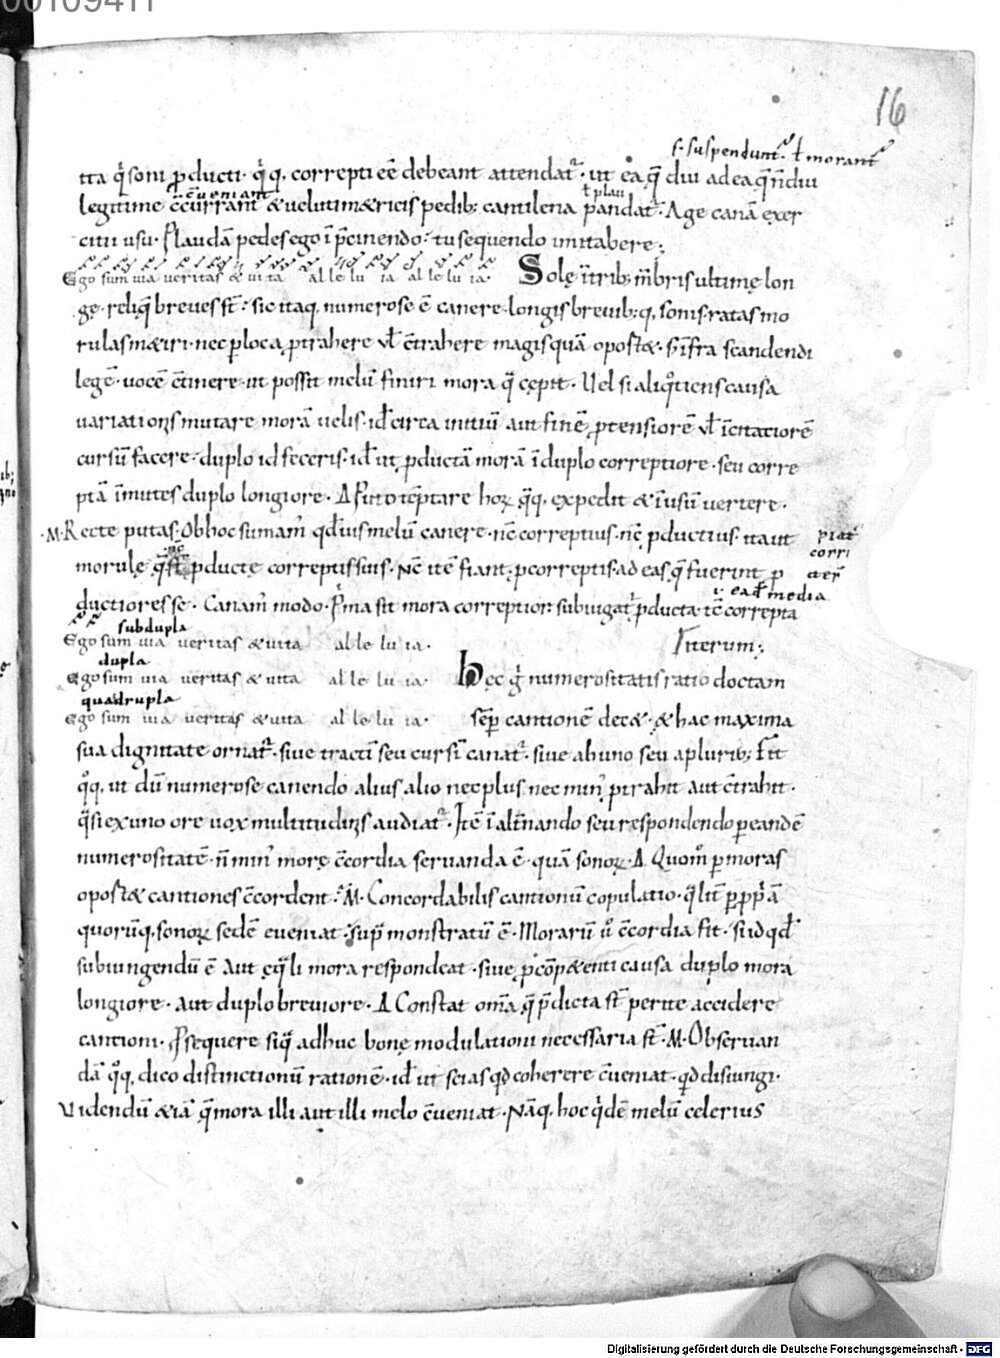 00109411
16
s. suspendunt᷑. ł morant᷑
tta q̇ soni ꝓducti. q̇ q, correpti eē debeant attendat᷑. ut ea quę diu ad ea quę ñ diu
cōueniant ł plau
legitime c̄currant & veluti metricis pedib; cantilena pandat᷑. Age canā exer
citii usu. Plaudā pedes ego ī p̄cinendo. tu sequendo imitabere;
Ego sum uia veritas & uita alleluia alleluia. Solę ī trib; mēbris ultimę lon
gę. reliquę breves st̄. sic itaq, numerose ē canere. longis brevib;q, sonis ratas mo
rulas metiri. nec per loca ꝓtrahere vł c̄trahere magis quā oportet. sed infra scandendi
legē. vocē c̄tinere. ut possit melū finiri mora quā cępit. Vel si aliquotiens causa
variationis mutare morā velis. id ē circa initiū aut finē ꝓtensiorē vł īcitatiorē
cursū facere. duplo id feceris. id ē ut ꝓductā morā ī duplo correptiore. seu corre
ptā īmutes duplo longiore. Δ tēptare horꝝ quęq, expedit & ī usū vertere.
.M. Recte putas. Ob hoc sumam᷑ quod ius melū canere. nc̄ correptius. nc̄ ꝓductius. ita ut
nc̄
morulę quę st̄ ꝓductę correptis suis. Nc̄ itē fiant. ꝓ correptis. ad eas quę fuerint ꝓ
i. eadē media
ductiores se. Canam᷑ modo. Prima sit mora correptior. subiugat᷑ ꝓducta. tc̄ correpta
subdupla
Ego sum uia veritas & uita alleluia. Iterum;
dupla
Ego sum uia veritas & uita alleluia. Hęc ġ numerositatis ratio doctam
quadrupla
Ego sum uia veritas & uita alleluia. semp̄ cantionē decet. & hac maxima
sua dignitate ornat᷑. sive tractī seu cursī canat᷑. sive ab uno seu a plurib; Fit
q̊q, ut dū numerose canendo alius alio nec plus nec min᷒ ꝓtrahit aut c̄trahit.
quasi ex uno ore vox multitudinis audiat᷑. Itē ī alt̄nando seu respondendo per eandē
numerositatē. ñ min᷒ morę c̄cordia servanda ē. quā sonorꝝ. Δ Quom̊ per moras
oportet cantiones c̄cordent. M. Concordabilis cantionū copulatio. qualit̄ per ꝓpriā
quorūq, sonorꝝ sedē eveniat. supra monstratū ē. Morarū v̊ c̄cordia fit. si id quod
subiungendū ē aut ęquali mora respondeat. sive ꝓ cōpetenti causa duplo mora
longiore. aut duplo breviore. Δ Constat omīa quę p̄dicta st̄ perite accidere
cantioni. Prosequere siqua adhuc bonę modulationi necessaria st̄. M. Observan
dā q̊q, dico distinctionū rationē. id ē ut scias quid coherere c̄veniat. quid disiungi.
Videndū etiā quę mora illi aut illi melo c̄veniat. Nāq, hoc quidē melū celerius
Digitalisierung gefördert durch die Deutsche Forschungsgemeinschaft - DFG